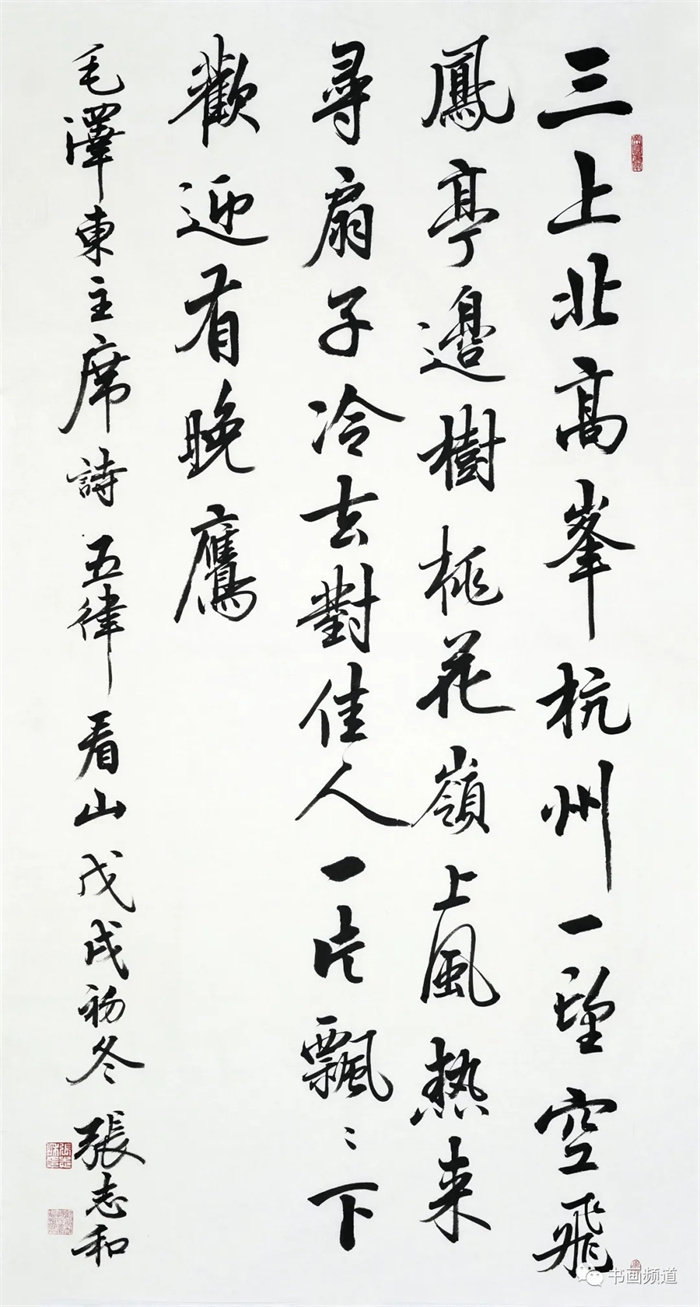 三上北高峯杭州一望空飛
鳳亭邊樹桃花嶺上風热来
尋扇子冷去對佳人一片飄〻下
歡迎有晚鷹
毛澤東主席詩五律看山戊戌初冬張志和
书画频道